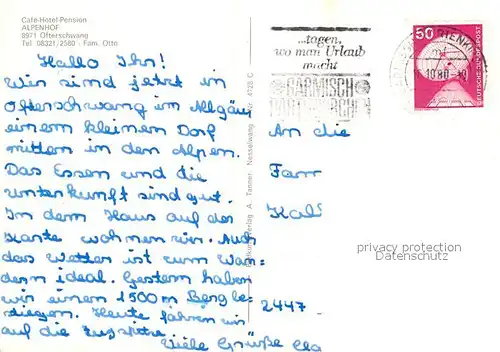 Cafe-Hotel-Pension
ALPENHOF
8971 Ofterschwang
Tel 08321/2580 - Fam. Otto
Hallo Ihr!
Wir sind jetzt in
Ofterschwang im Allgäu
einem kleinen Dorf
mitten in den Alpen.
Das Essen und die
Unterkunft sind gut.
In dem Haus auf der
Karte wohnen wir. Auch
das Wetter ist zum Wan-
dern ideal. Gestern haben
wir einen 1500 m Berg be-
stiegen. Heute fahren wir
auf die Zugspitze
Viele Grüße
Verlag A. Tanner, Nesselwang
4128 C
...tagen,
wo man Urlaub
macht
GARMISCH
PARTENKIRCHEN
50
DEUTSCHE BUNDESPOST
An die
Fam
2447
privacy protection
Datenschutz